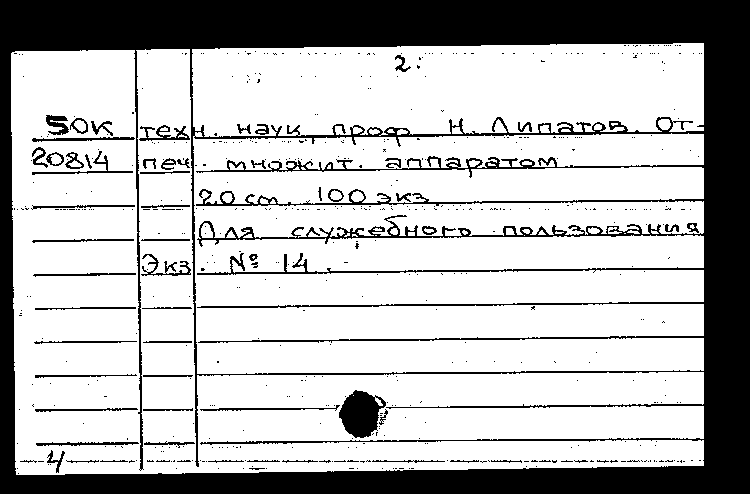 2.
50К техн. наук, проф. Н. Липатов. От-
20814 печ. множит. аппаратом.
20 см. 100 экз.
Для служебного пользования
Экз. № 14.
4